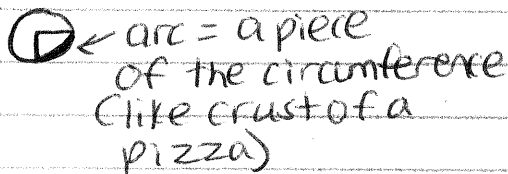 arc = a piece
of the circumference
(like crust of a
pizza)